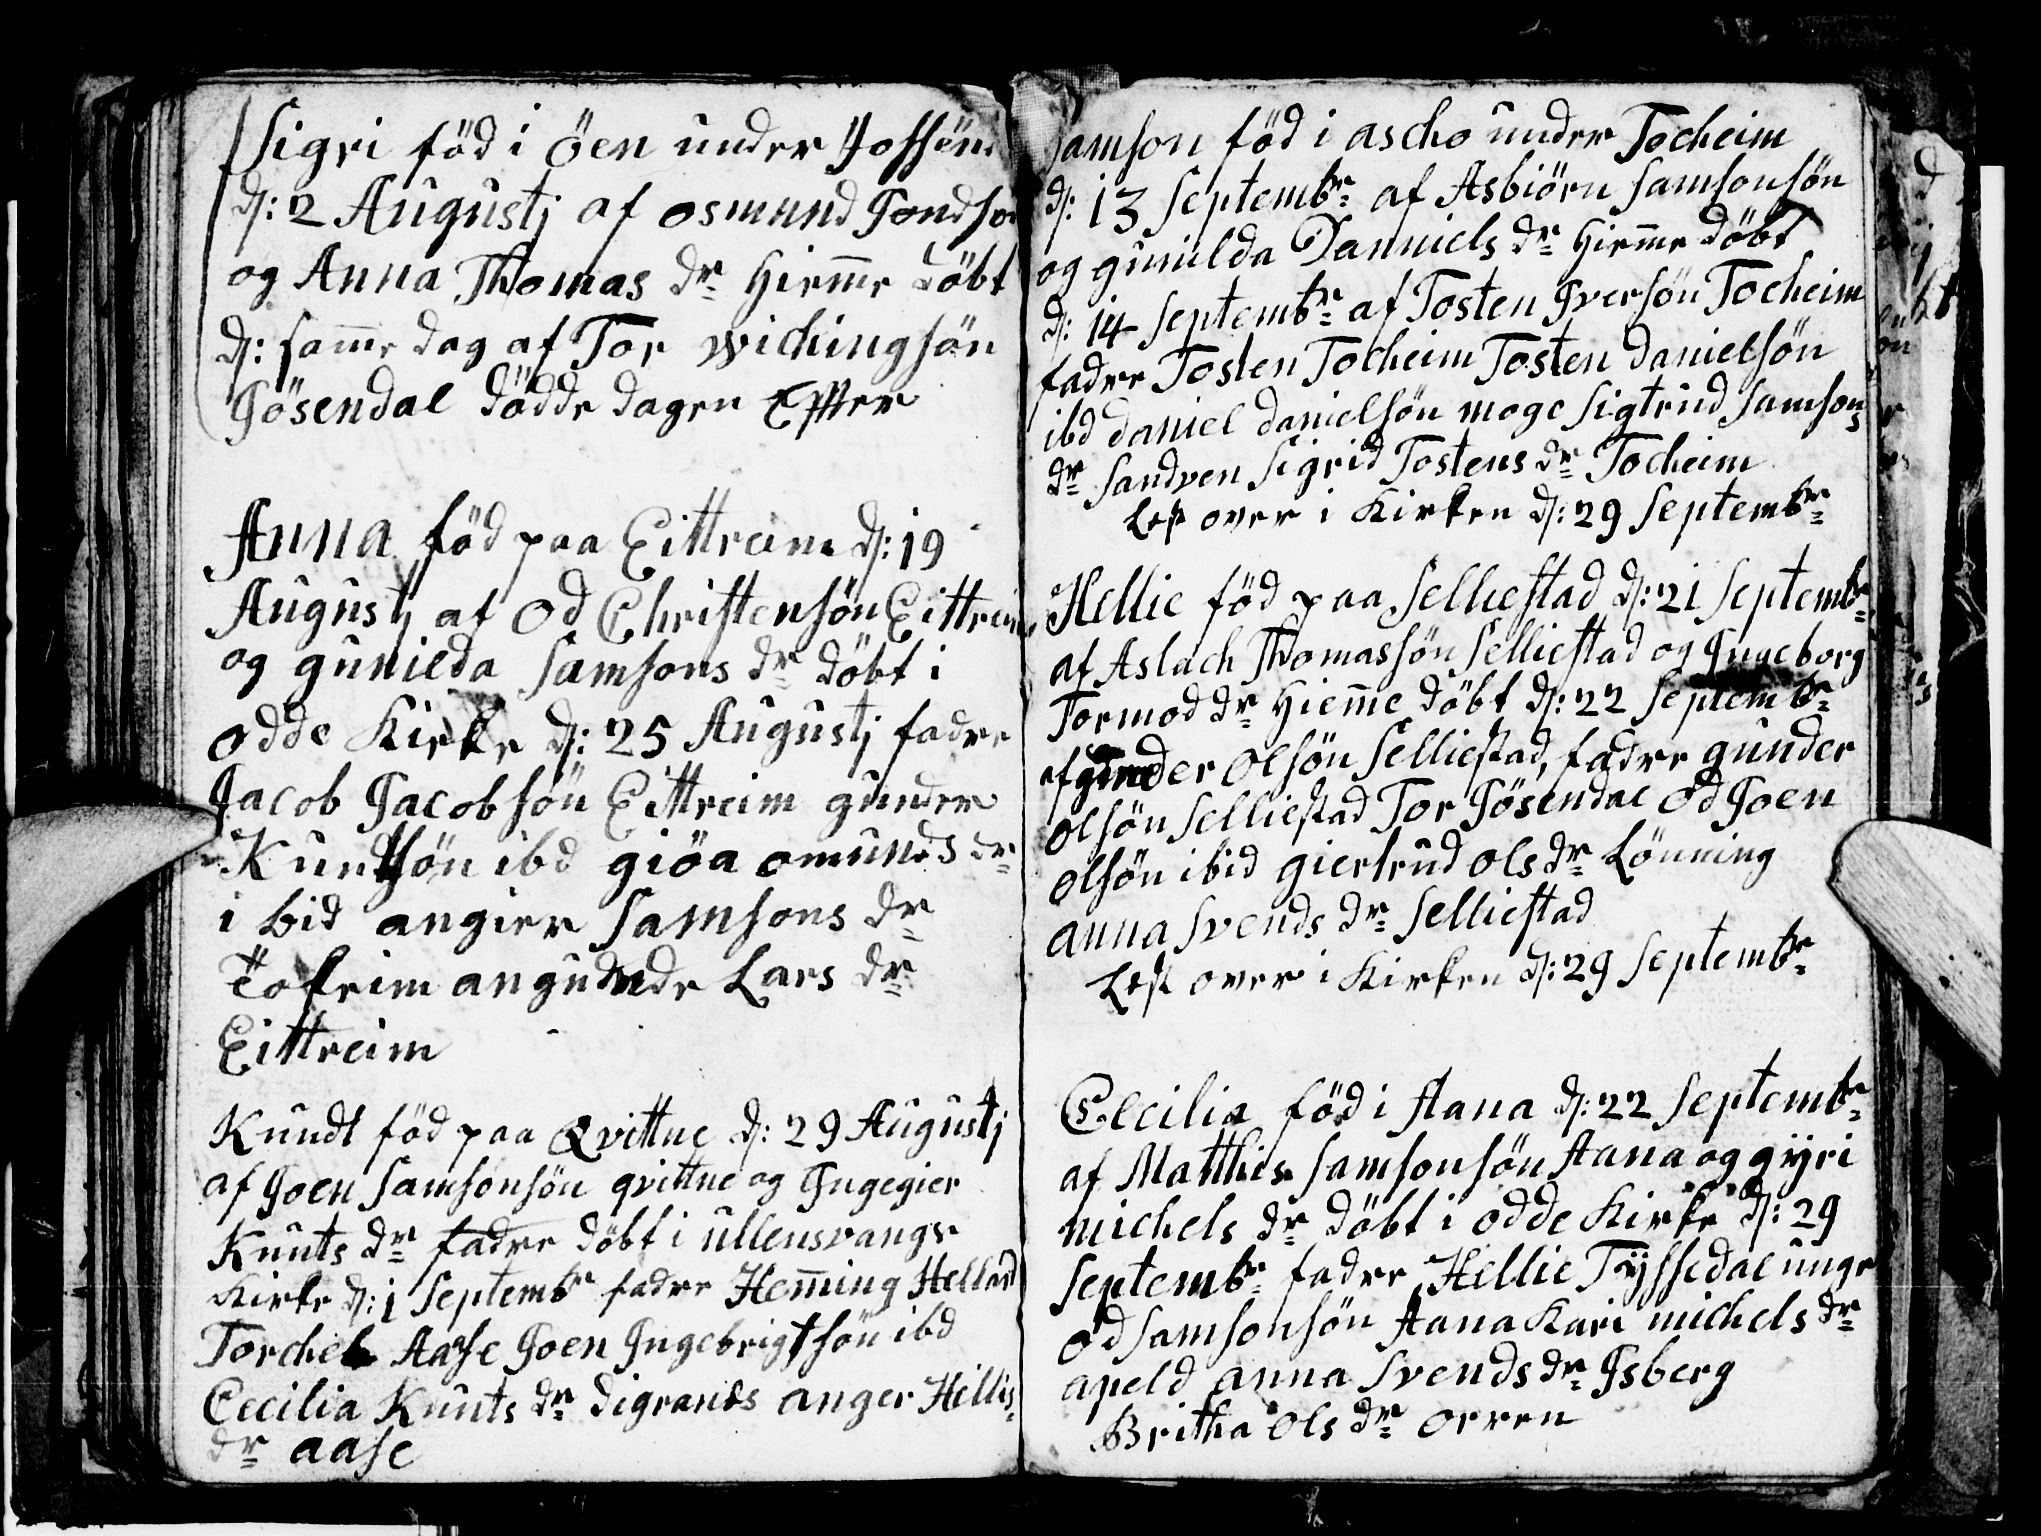 Sigri föd i öen under Jossend
d: 2 Augustj af osmund Jondsø
og Anna Thomas dr hiemme döbt
d: samme dag af Tor wichingsön
Jösendal dödde dagen Effter
Anna föd paa Eittreim d: 19
Augustj af Od Christensön Eittreim
og gunilda Samsons dr döbt i
odde Kirke d: 25 Augustj fadre
Jacob Jacobsön Eittreim gunder
Kundtsön ibd giöa omunds dr
i bid angier Samsons dr
Tokeim angunde Lars dr
Eittreim
Kundt föd paa Qvittne d: 29 Augustj
af Joen Samsonsön qvittne og Ingegier
Kunts dr fadre döbt i ullensvangs
Kirke d: 1 Septembr fadre Hemming Helland
Torchel Aase Joen Ingebrigtsön ibd
Cecilia Kunts dr digranes anger Hellis
dr aase
Samson föd i ascho under Tocheim
d: 13 Septembr af Asbiörn Samsonsön
og gunilda Danniels dr hiemme döbt
d: 14 Septembr af Tosten Iversön Tocheim
fadre Tosten Tocheim Tosten danielsön
ibd daniel danielsön moge Sigtrud Samsons
dr Sandven Sigrid Tostens dr Tocheim
Lest over i Kirken d: 29 Septembr
Hellie föd paa Selliestad d: 21 Septembr
af Aslach Thomassön Selliestad og Ingeborg
Tormod dr Hiemme döbt d: 22 Septembr
af gunder olsön Selliestad, fadre gunder
olsön Selliestad Tor Jösendal Od Joen
olsön ibid giertrud ols dr Lönning
anna Svends dr Selliestad
Lest over i Kirken d: 29 Septembr
Cecilia föd i Aana d: 22 Septembr
af Matthis Samsonsön Aana og gÿri
michels dr döbt i odde Kirke d: 29
Septembr fadre Hellie Tÿssedal unge
od Samsonsön Aana Kari michels dr
apeld anna Svends dr Isberg
Britha ols dr orren